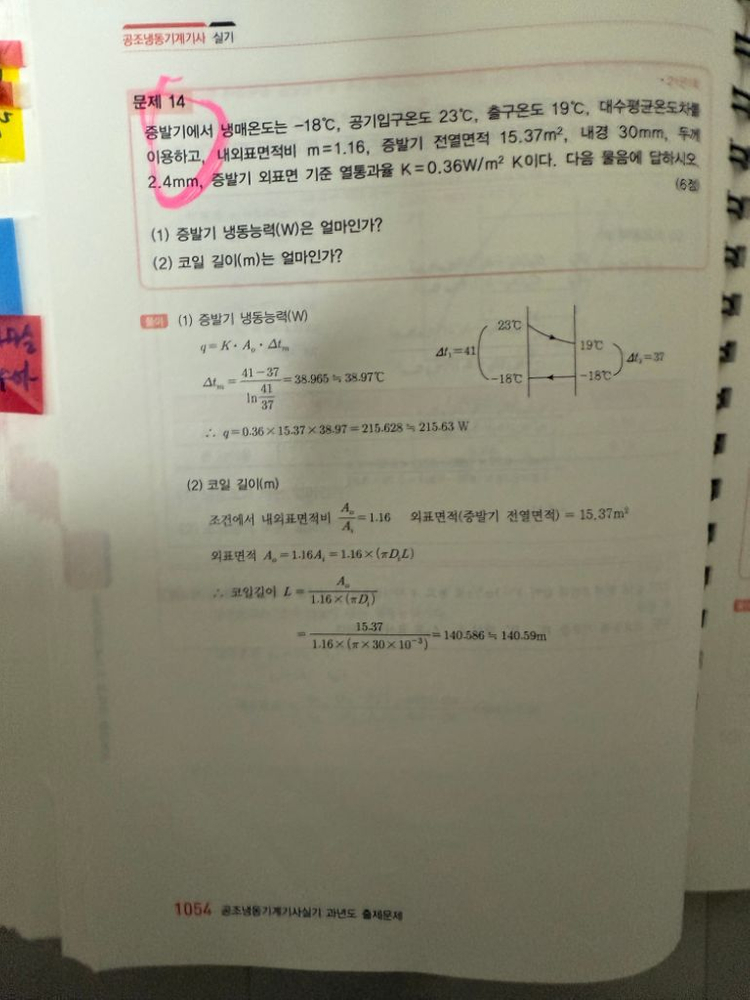 공조냉동기계기사 실기
문제 14
증발기에서 냉매온도는 -18℃, 공기입구온도 23℃, 출구온도 19℃, 대수평균온도차를
이용하고, 내외표면적비 m=1.16, 증발기 전열면적 15.37m², 내경 30mm, 두께
2.4mm, 증발기 외표면 기준 열통과율 K=0.36W/m² K이다. 다음 물음에 답하시오.
(6점)
(1) 증발기 냉동능력(W)은 얼마인가?
(2) 코일 길이(m)는 얼마인가?
풀이 (1) 증발기 냉동능력(W)
q=K·Aₒ·Δtₘ
Δtₘ = (41-37)/(ln 41/37) = 38.965 ≒ 38.97℃
∴ q=0.36×15.37×38.97=215.628≒215.63 W
23℃
19℃
Δt₁=41
Δt₂=37
-18℃
-18℃
(2) 코일 길이(m)
조건에서 내외표면적비 Aₒ/Aᵢ=1.16 외표면적(증발기 전열면적) = 15.37m²
외표면적 Aₒ=1.16Aᵢ=1.16×(πDᵢL)
∴ 코일길이 L= Aₒ/(1.16×(πDᵢ))
= 15.37/(1.16×(π×30×10⁻³)) = 140.586≒140.59m
1054 공조냉동기계기사실기 과년도 출제문제